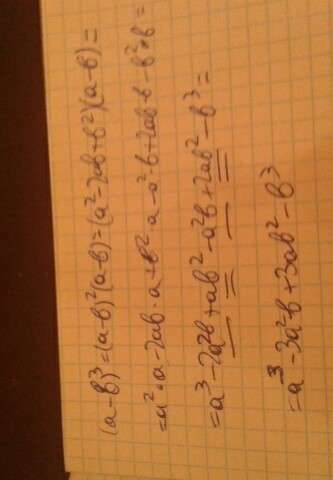 (a-b)³=(a-b)²(a-b)=(a²-2ab+b²)(a-b)=
=a²·a-2ab·a+b²·a-a²·b+2ab·b-b²·b=
=a³-2a²b+ab²-a²b+2ab²-b³=
=a³-3a²b+3ab²-b³